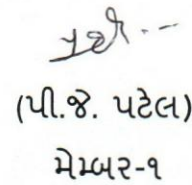 (પી.જે. પટેલ)
મેમ્બર-૧